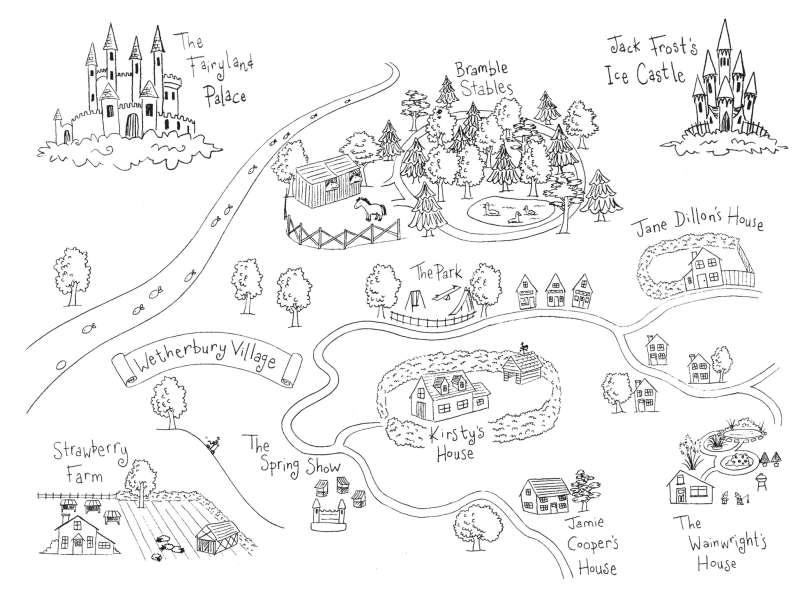 The
Fairyland
Palace
Bramble
Stables
Jack Frost's
Ice Castle
Jane Dillon's House
The Park
Wetherbury Village
Kirsty's
House
Strawberry
Farm
The
Spring Show
Jamie
Cooper's
House
The
Wainwright's
House